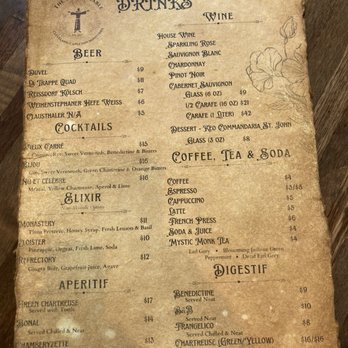 DRINKS
BEER
DUVEL $9
LA TRAPPE QUAD $8
REISSDORF KÖLSCH $7
WEIHENSTEPHANER HEFE WEISS $6
CLAUSTHALER N/A $5
COCKTAILS
VIEUX CARRÉ $15
Sweet Vermouth, Benedictine & Bitters
BIJOU $15
Gin, Sweet Vermouth, Green Chartreuse & Orange Bitters
NU ET CÉLÈBRE $16
Mezcal, Yellow Chartreuse, Aperol & Lime
ELIXIR
MONASTERY $11
Preserve, Honey Syrup, Fresh Lemon & Basil
CLOISTER $10
Pineapple, Orgeat, Fresh Lime, Soda
REFRECTORY $12
Ginger Beer, Grapefruit Juice, Agave
APERITIF
GREEN CHARTREUSE $17
Served with Tonic
BONAL $14
Served Chilled & Neat
$13
WINE
HOUSE WINE
SPARKLING ROSE
SAUVIGNON BLANC
CHARDONNAY
PINOT NOIR
CABERNET SAUVIGNON
GLASS (6 OZ) $9
1/2 CARAFE (16 OZ) $21
CARAFE (1 LITER) $42
DESSERT - KEO COMMANDARIA ST. JOHN
GLASS (3 OZ) $8
COFFEE, TEA & SODA
COFFEE $4
ESPRESSO $3/$5
CAPPUCCINO $5
LATTE $5
FRENCH PRESS $6
SODA & JUICE $4
MYSTIC MONK TEA $4
Earl Grey • Blossoming Indian Green
Peppermint • Decaf Earl Grey
DIGESTIF
BENEDICTINE $9
Served Neat
B&B $10
Served Neat
FRANGELICO $8
Served Chilled & Neat
CHARTREUSE (GREEN/YELLOW) $16/$16